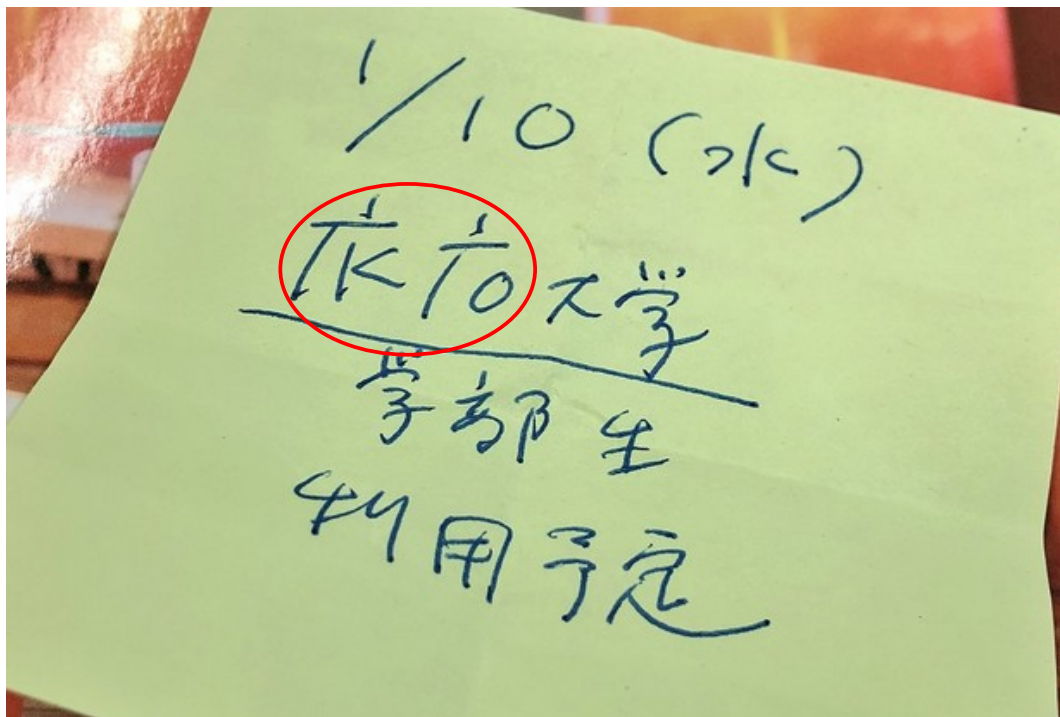 1/10(水)
广K广O大学
学部生
利用予定